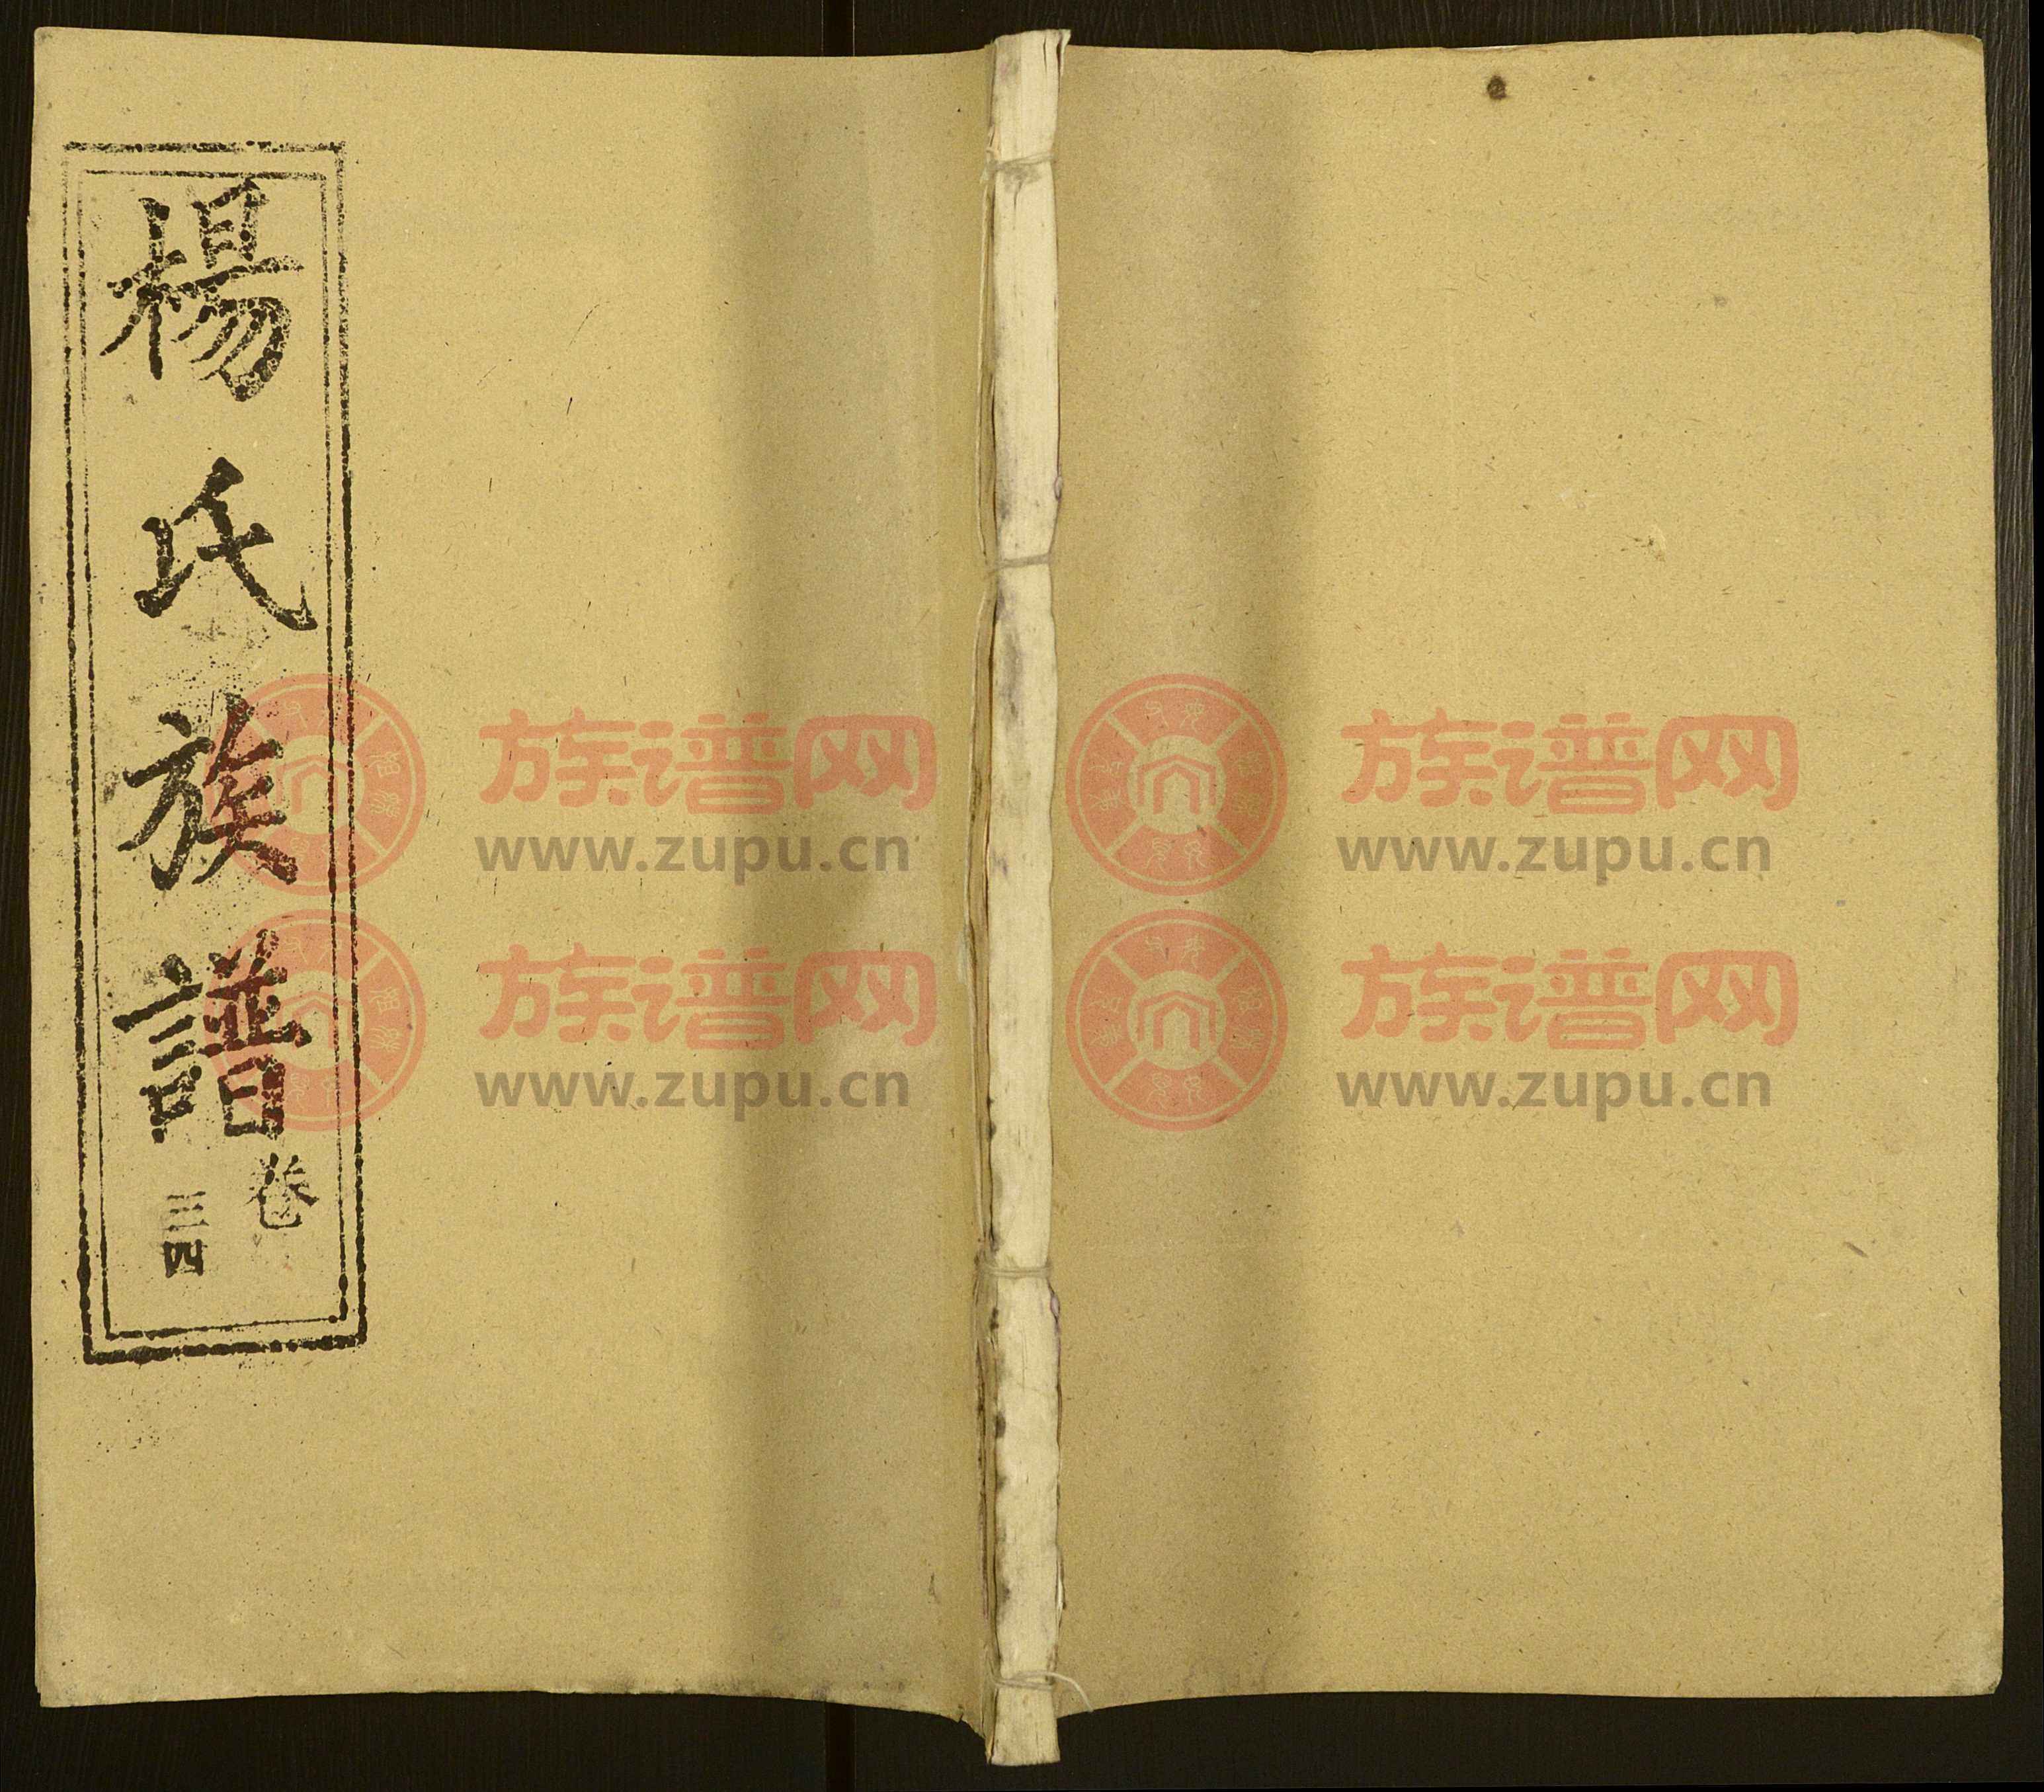 楊氏族譜
卷
三四
族谱网
www.zupu.cn
族谱网
www.zupu.cn
族谱网
www.zupu.cn
族谱网
www.zupu.cn